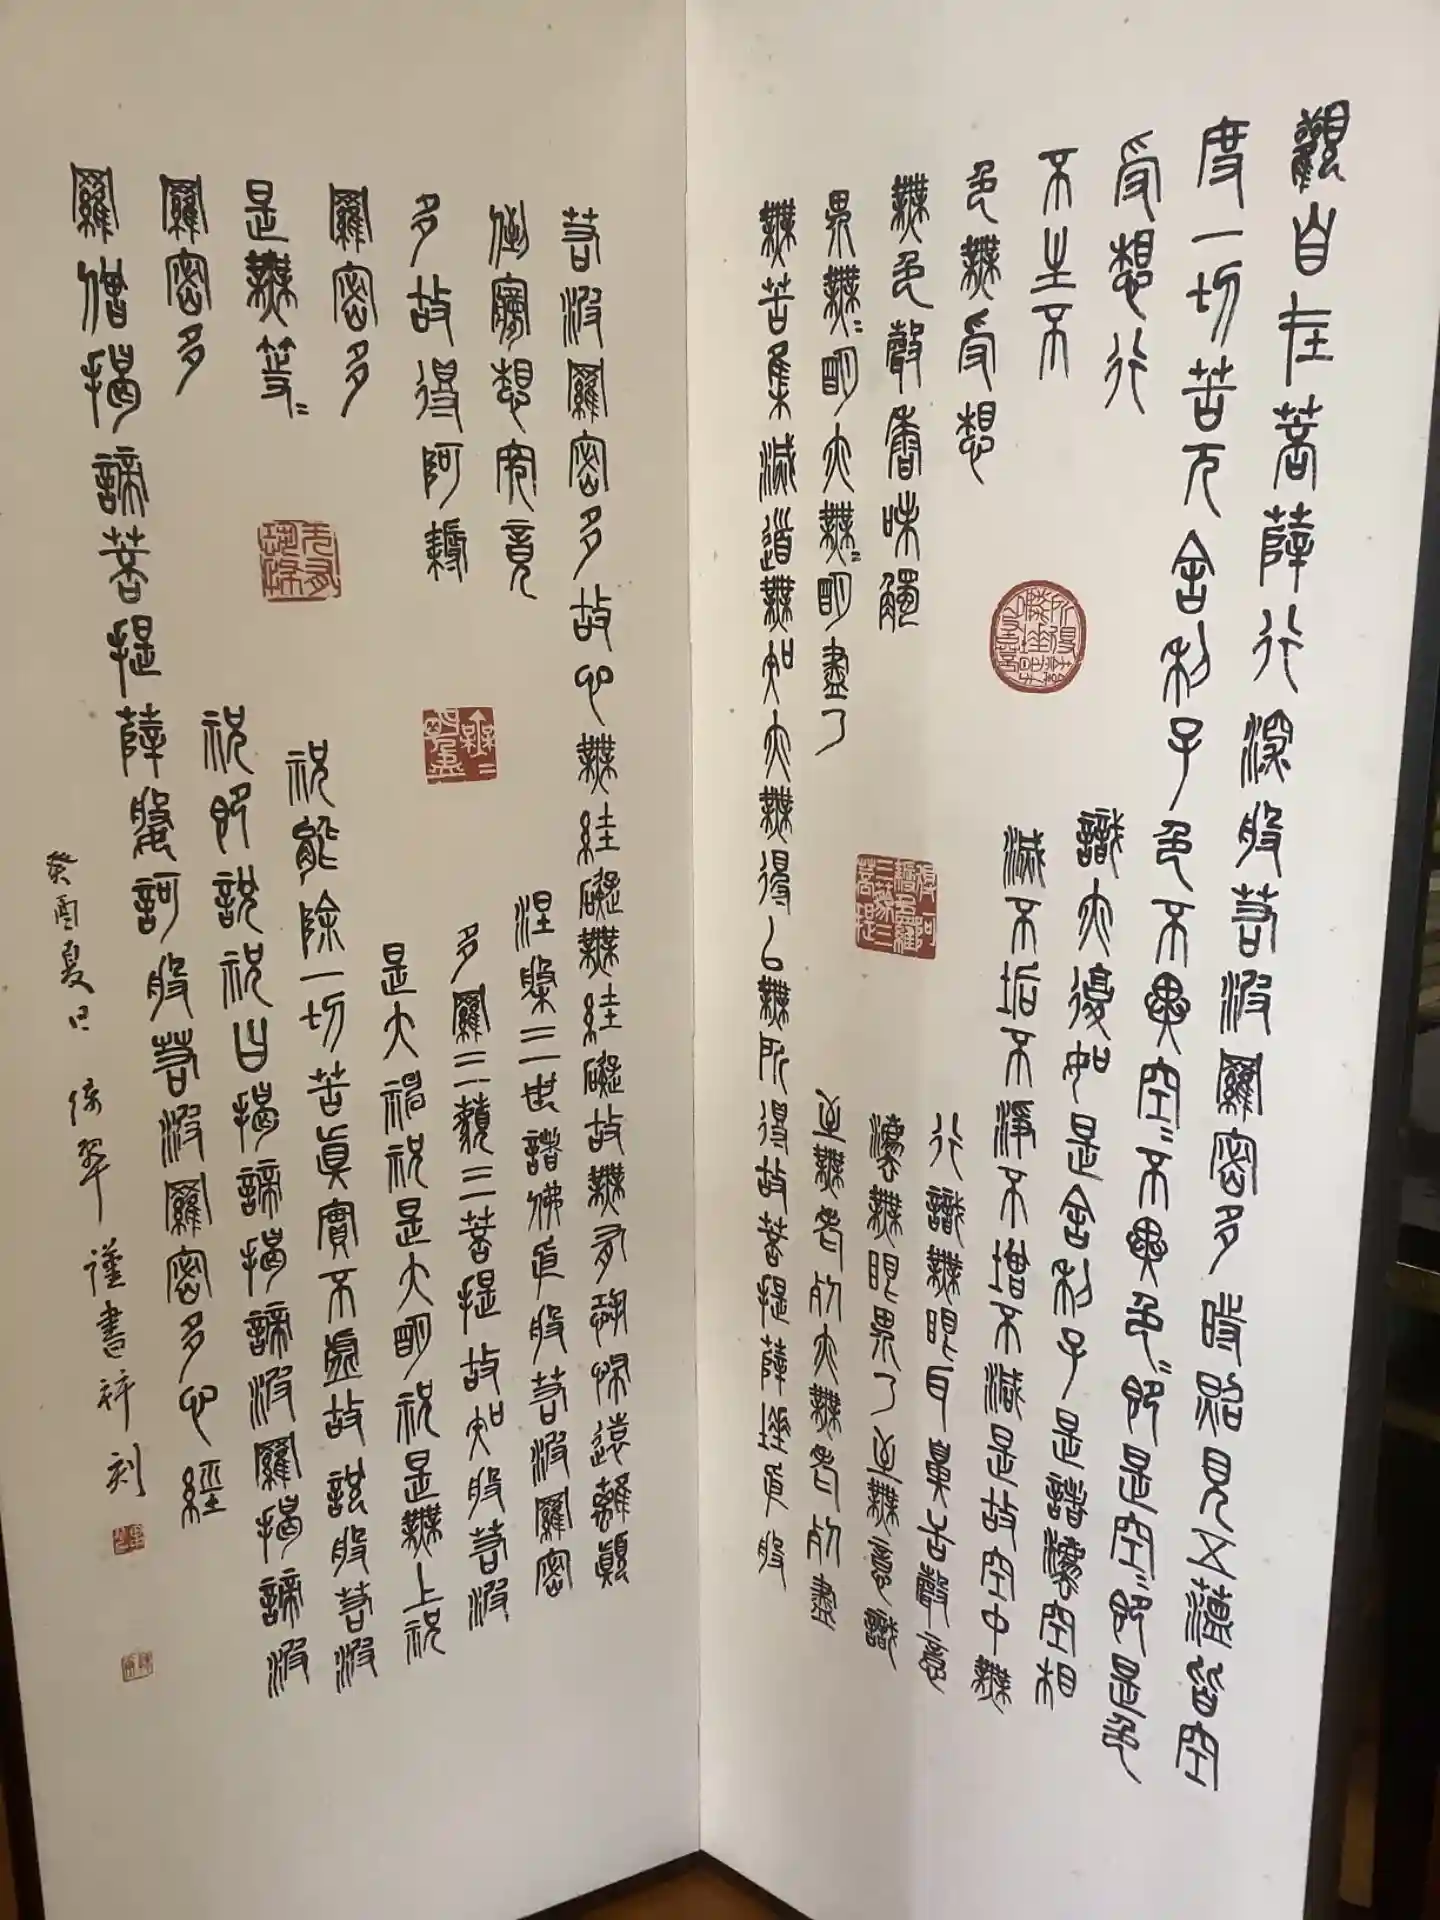 觀自在菩薩行深般若波羅密多時照見五蘊皆空
度一切苦厄舍利子色不異空〻不異色〻即是空〻即是色
受想行
識亦復如是舍利子是諸灋空相
不生不
滅不垢不淨不增不減是故空中無
色無受想
行識無眼耳鼻舌聲意
無色聲香味觸
灋無眼界乃至無意識
界無〻明亦無〻明盡乃
至無老死亦無老死盡
無苦集滅道無知亦無得以無所得故菩提薩埵依般
若波羅密多故心無絓礙無絓礙故無有恐怖遠離顛
倒夢想究竟
涅槃三世諸佛依般若波羅密
多故得阿耨
多羅三藐三菩提故知般若波
羅密多
是大神祝是大明祝是無上祝
是無等〻
祝能除一切苦真實不虛故說般若波
羅密多
祝即說祝曰揭諦揭諦波羅揭諦波
羅僧揭諦菩提薩婆訶般若波羅密多心經
癸酉夏日 謹書并刻
得阿耨多羅三藐三菩提